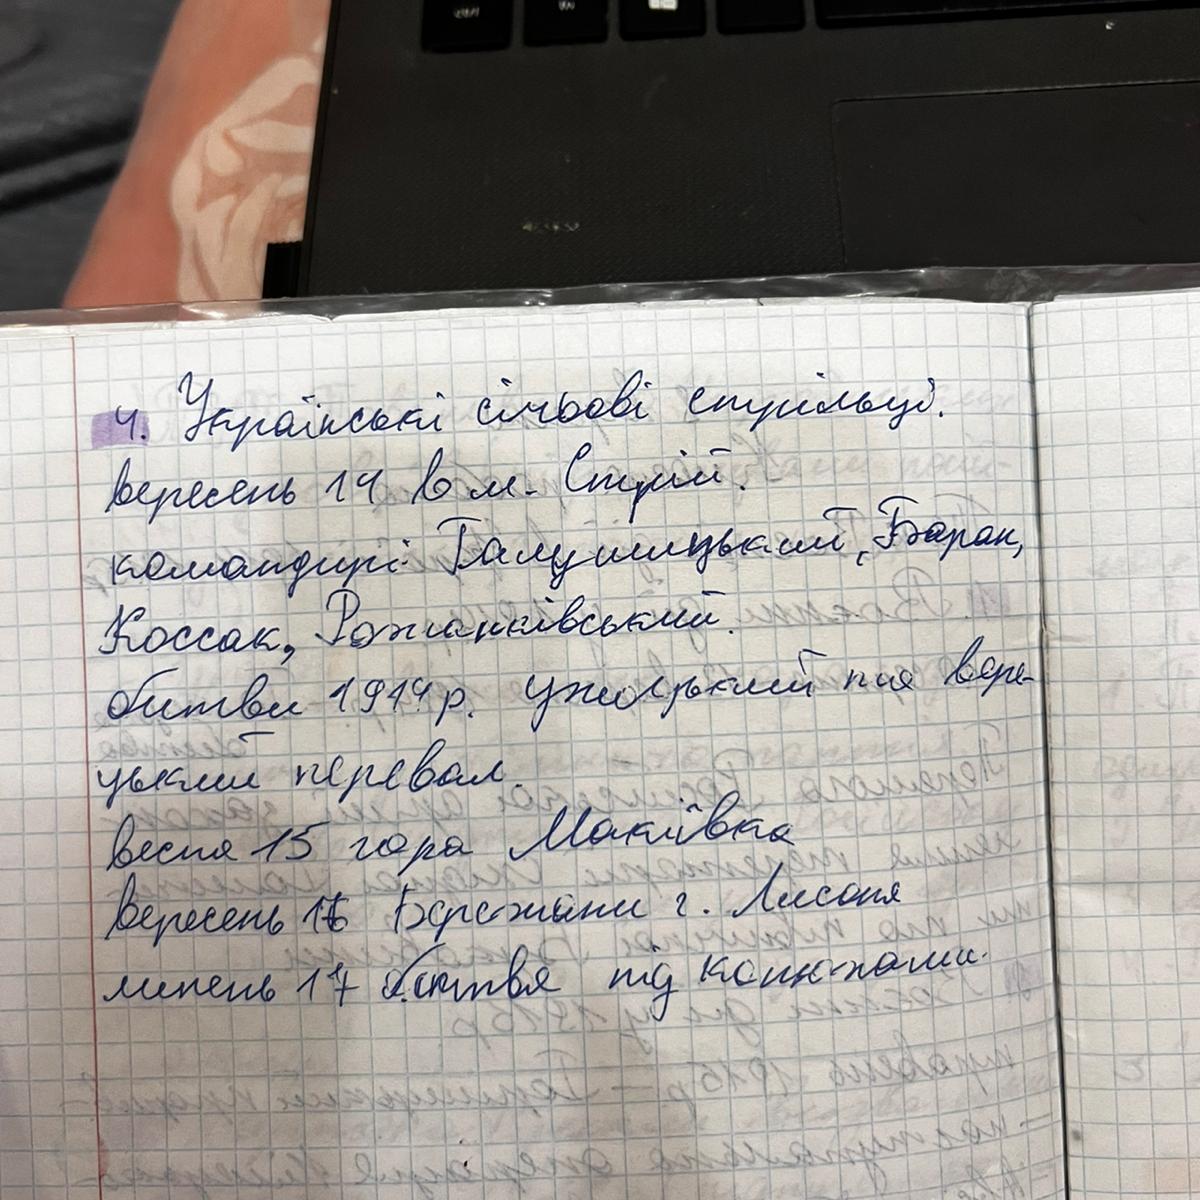 4. Українські січьові стрільці.
вересень 14 в м. Стрий.
командирі: Галущицький, Баран,
Коссак, Рожанківський.
битви 1914 р. Ужоцький пня вере-
цький перевал.
весня 15 гора Маківка
вересень 16 Бережани г. Лисоня
липень 17 битвя під Конюхами.